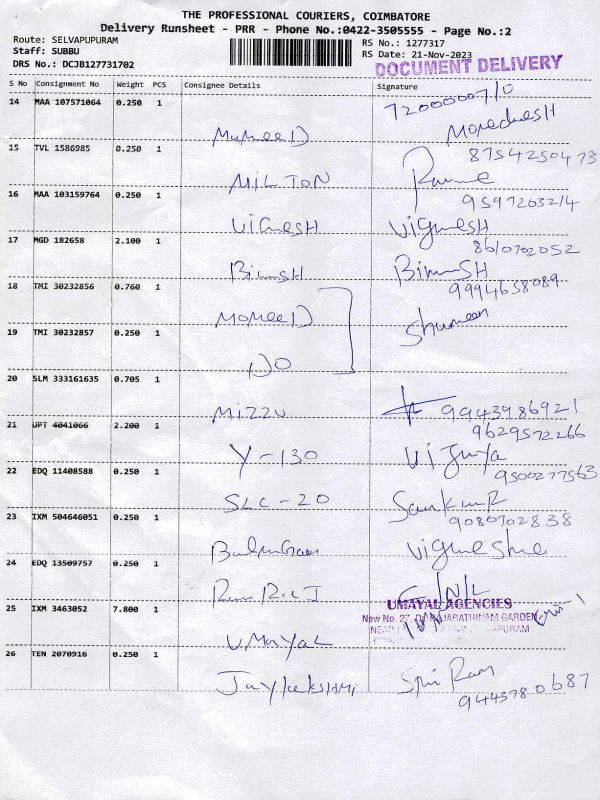 THE PROFESSIONAL COURIERS, COIMBATORE
Delivery Runsheet - PRR - Phone No.:0422-3505555 - Page No.:2
Route: SELVAPUPURAM
Staff: SUBBU
DRS No.: DCJB127731702
RS No.: 1277317
RS Date: 21-Nov-2023
DOCUMENT DELIVERY
S No Consignment No Weight PCS Consignee Details Signature
14 MAA 107571064 0.250 1
15 TVL 1586985 0.250 1
8754250473
MILTON
16 MAA 103159764 0.250 1
9597203214
VIGNESH VIGNESH
17 MGD 182658 2.100 1
8610702052
18 TMI 30232856 0.760 1
9994658089
19 TMI 30232857 0.250 1
DO
20 SLM 333161635 0.705 1
MIZZU 9943986921
21 UPT 4041066 2.200 1
9629572266
Y-130
22 EDQ 11408588 0.250 1
9500277563
SLC-20
23 IXM 504646051 0.250 1
9080702838
24 EDQ 13509757 0.250 1
25 IXM 3463052 7.800 1
UMAYAL AGENCIES
New No. 27, RAJARATHINAM GARDEN
UMAYAL
26 TEN 2070916 0.250 1
Sri Ram
9443780687